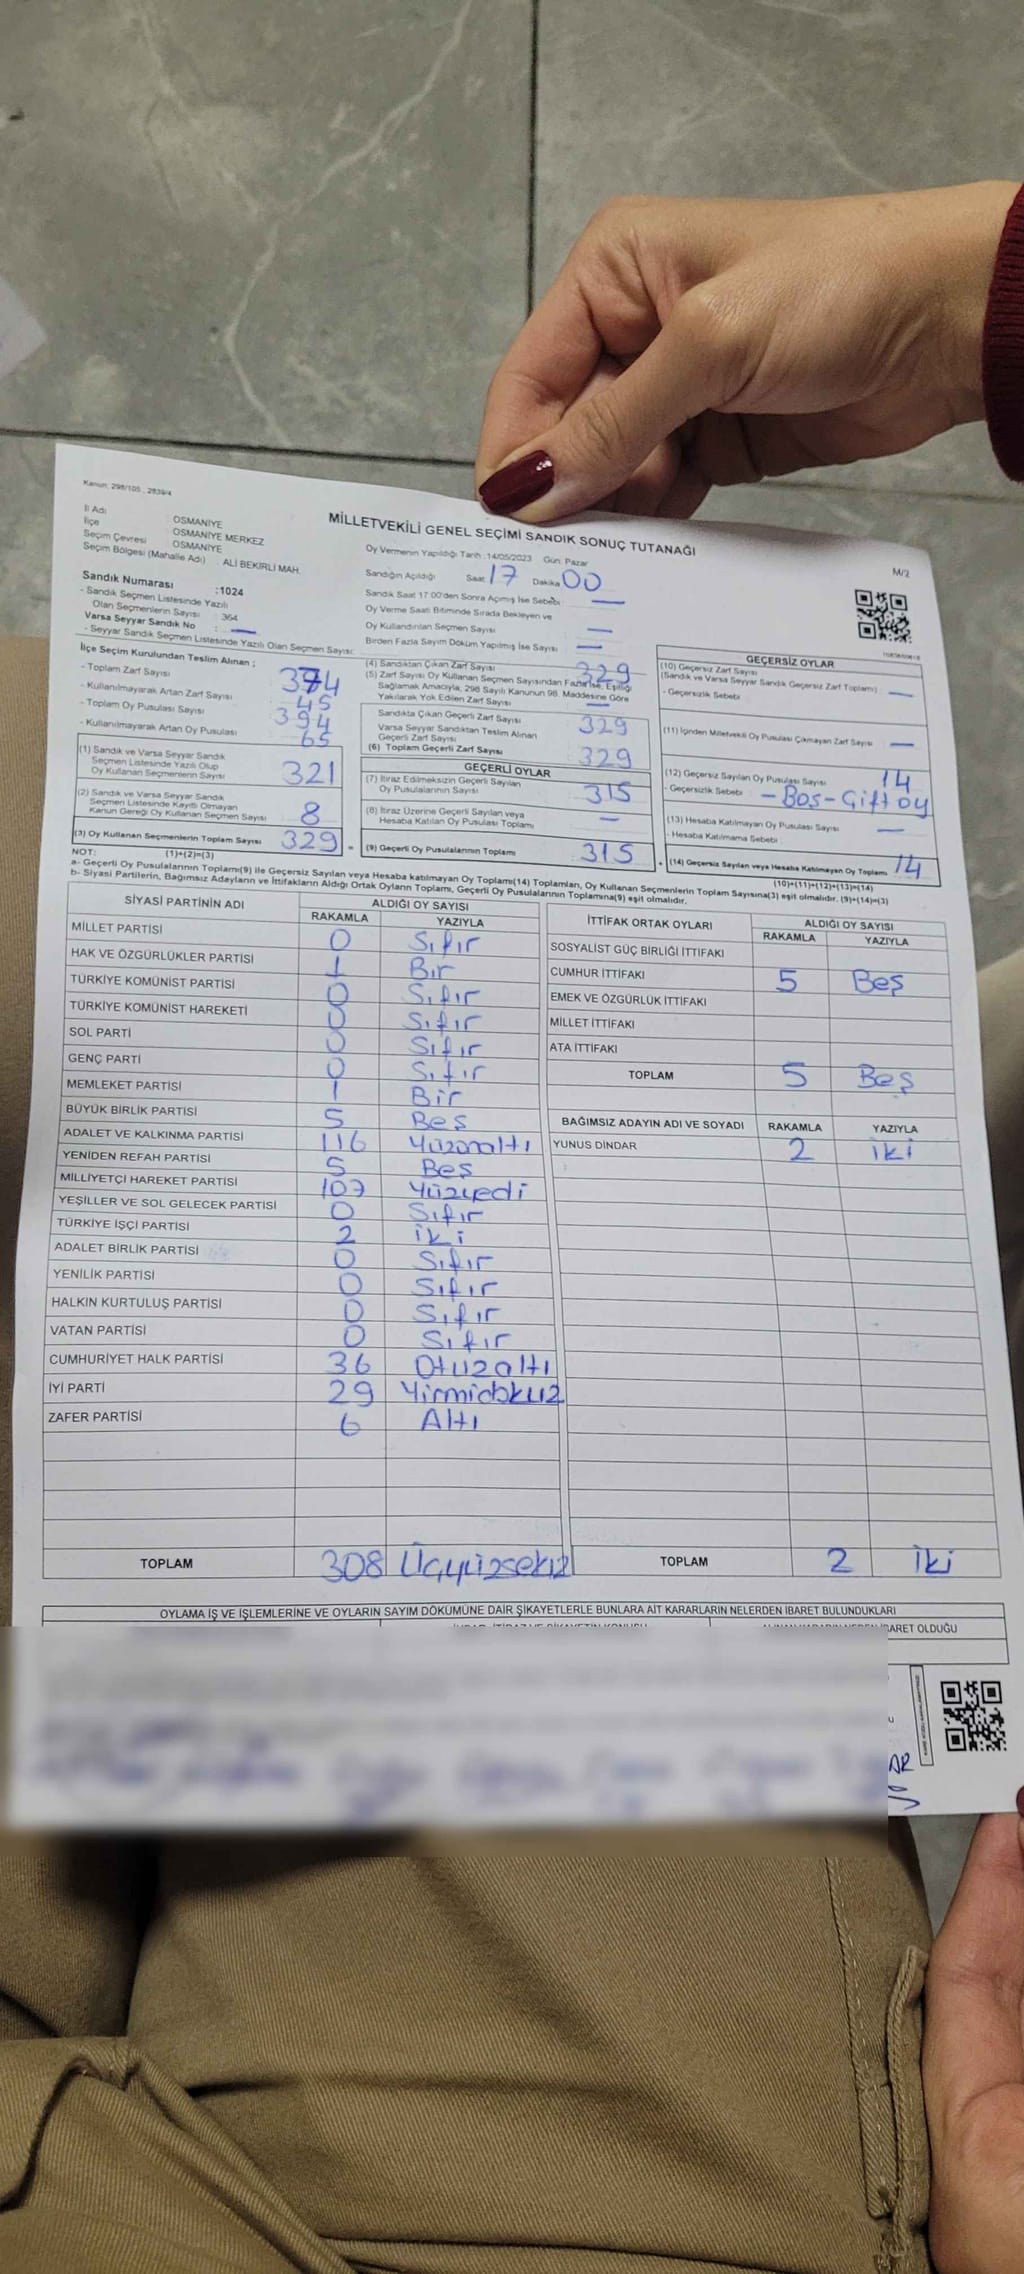 Kanun: 298/105 , 2839/4
MİLLETVEKİLİ GENEL SEÇİMİ SANDIK SONUÇ TUTANAĞI
M/2
İl Adı : OSMANIYE
İlçe : OSMANIYE MERKEZ
Seçim Çevresi : OSMANIYE
Seçim Bölgesi (Mahalle Adı) : ALİ BEKİRLİ MAH.
Sandık Numarası :1024
- Sandık Seçmen Listesinde Yazılı
Olan Seçmenlerin Sayısı : 364
Varsa Seyyar Sandık No : —
- Seyyar Sandık Seçmen Listesinde Yazılı Olan Seçmen Sayısı:
Oy Vermenin Yapıldığı Tarih :14/05/2023 Gün: Pazar
Sandığın Açıldığı Saat 17 Dakika 00
Sandık Saat 17:00'den Sonra Açımış İse Sebebi : —
Oy Verme Saati Bitiminde Sırada Bekleyen ve
Oy Kullandırılan Seçmen Sayısı : —
Birden Fazla Sayım Döküm Yapılmış İse Sayısı : —
İlçe Seçim Kurulundan Teslim Alınan ;
- Toplam Zarf Sayısı : 374
- Kullanılmayarak Artan Zarf Sayısı : 45
- Toplam Oy Pusulası Sayısı : 394
- Kullanılmayarak Artan Oy Pusulası : 65
(1) Sandık ve Varsa Seyyar Sandık
Seçmen Listesinde Yazılı Olup
Oy Kullanan Seçmenlerin Sayısı : 321
(2) Sandık ve Varsa Seyyar Sandık
Seçmen Listesinde Kayıtlı Olmayan
Kanun Gereği Oy Kullanan Seçmen Sayısı : 8
(3) Oy Kullanan Seçmenlerin Toplam Sayısı : 329 =
(1)+(2)=(3)
(4) Sandıktan Çıkan Zarf Sayısı : 329
(5) Zarf Sayısı Oy Kullanan Seçmen Sayısından Fazla İse, Eşitliği
Sağlamak Amacıyla, 298 Sayılı Kanunun 98. Maddesine Göre
Yakılarak Yok Edilen Zarf Sayısı : —
Sandıkta Çıkan Geçerli Zarf Sayısı : 329
Varsa Seyyar Sandıktan Teslim Alınan
Geçerli Zarf Sayısı :
(6) Toplam Geçerli Zarf Sayısı : 329
GEÇERLİ OYLAR
(7) İtiraz Edilmeksizin Geçerli Sayılan
Oy Pusulalarının Sayısı : 315
(8) İtiraz Üzerine Geçerli Sayılan veya
Hesaba Katılan Oy Pusulası Toplamı : —
(9) Geçerli Oy Pusulalarının Toplamı : 315 +
GEÇERSİZ OYLAR
(10) Geçersiz Zarf Sayısı
(Sandık ve Varsa Seyyar Sandık Geçersiz Zarf Toplamı) : —
- Geçersizlik Sebebi :
(11) İçinden Milletvekili Oy Pusulası Çıkmayan Zarf Sayısı : —
(12) Geçersiz Sayılan Oy Pusulası Sayısı : 14
- Geçersizlik Sebebi : - Boş - Çift oy
(13) Hesaba Katılmayan Oy Pusulası Sayısı : —
- Hesaba Katılmama Sebebi :
(14) Geçersiz Sayılan veya Hesaba Katılmayan Oy Toplamı : 14
(10)+(11)+(12)+(13)=(14)
NOT:
a- Geçerli Oy Pusulalarının Toplamı(9) ile Geçersiz Sayılan veya Hesaba katılmayan Oy Toplamı(14) Toplamları, Oy Kullanan Seçmenlerin Toplam Sayısına(3) eşit olmalıdır. (9)+(14)=(3)
b- Siyasi Partilerin, Bağımsız Adayların ve İttifakların Aldığı Ortak Oyların Toplamı, Geçerli Oy Pusulalarının Toplamına(9) eşit olmalıdır.
SİYASİ PARTİNİN ADI ALDIĞI OY SAYISI
RAKAMLA YAZIYLA
MİLLET PARTİSİ 0 Sıfır
HAK VE ÖZGÜRLÜKLER PARTİSİ 1 Bir
TÜRKİYE KOMÜNİST PARTİSİ 0 Sıfır
TÜRKİYE KOMÜNİST HAREKETİ 0 Sıfır
SOL PARTİ 0 Sıfır
GENÇ PARTİ 0 Sıfır
MEMLEKET PARTİSİ 1 Bir
BÜYÜK BİRLİK PARTİSİ 5 Beş
ADALET VE KALKINMA PARTİSİ 116 Yüzonaltı
YENİDEN REFAH PARTİSİ 5 Beş
MİLLİYETÇİ HAREKET PARTİSİ 107 Yüzyedi
YEŞİLLER VE SOL GELECEK PARTİSİ 0 Sıfır
TÜRKİYE İŞÇİ PARTİSİ 2 İki
ADALET BİRLİK PARTİSİ 0 Sıfır
YENİLİK PARTİSİ 0 Sıfır
HALKIN KURTULUŞ PARTİSİ 0 Sıfır
VATAN PARTİSİ 0 Sıfır
CUMHURİYET HALK PARTİSİ 36 Otuzaltı
İYİ PARTİ 29 Yirmidokuz
ZAFER PARTİSİ 6 Altı
TOPLAM 308 Üçyüzsekiz
İTTİFAK ORTAK OYLARI ALDIĞI OY SAYISI
RAKAMLA YAZIYLA
SOSYALİST GÜÇ BİRLİĞİ İTTİFAKI
CUMHUR İTTİFAKI 5 Beş
EMEK VE ÖZGÜRLÜK İTTİFAKI
MİLLET İTTİFAKI
ATA İTTİFAKI
TOPLAM 5 Beş
BAĞIMSIZ ADAYIN ADI VE SOYADI RAKAMLA YAZIYLA
YUNUS DİNDAR 2 İki
TOPLAM 2 İki
OYLAMA İŞ VE İŞLEMLERİNE VE OYLARIN SAYIM DÖKÜMÜNE DAİR ŞİKAYETLERLE BUNLARA AİT KARARLARIN NELERDEN İBARET BULUNDUKLARI
OLDUĞU